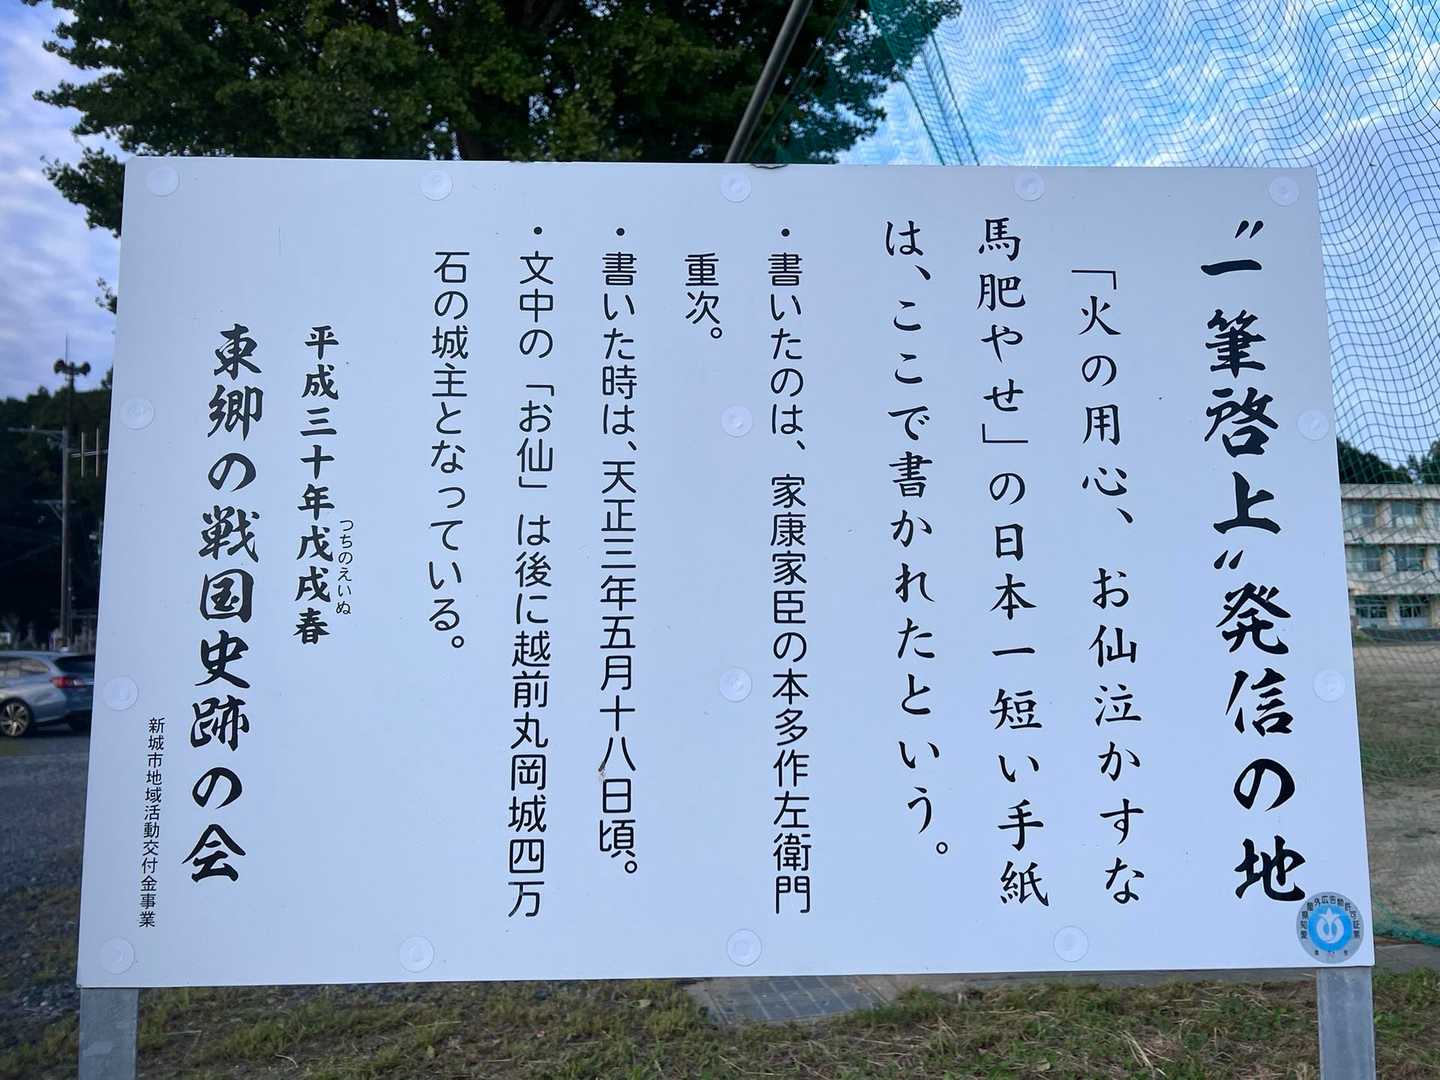 〝一筆啓上〟発信の地
「火の用心、お仙泣かすな
馬肥やせ」の日本一短い手紙
は、ここで書かれたという。
・書いたのは、家康家臣の本多作左衛門
重次。
・書いた時は、天正三年五月十八日頃。
・文中の「お仙」は後に越前丸岡城四万
石の城主となっている。
平成三十年戊戌春
つちのえいぬ
東郷の戦国史跡の会
新城市地域活動交付金事業